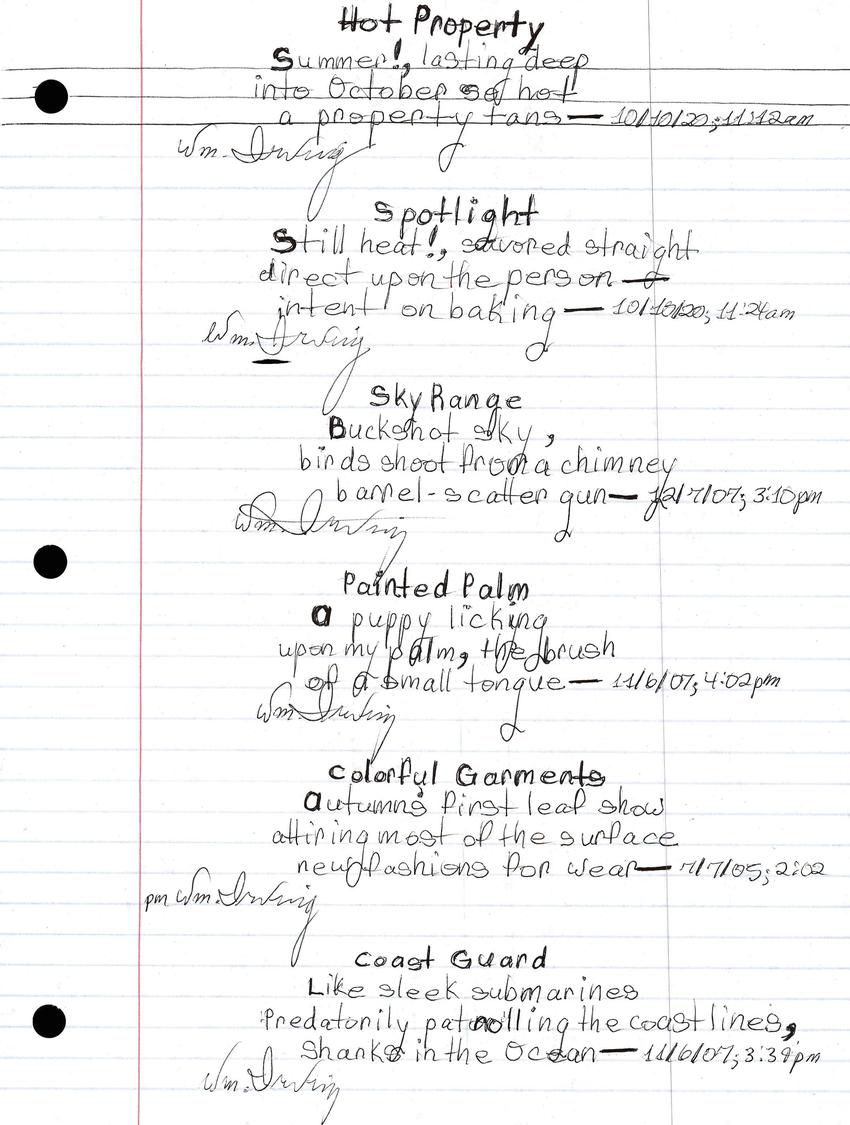 Hot Property
Summer!, lasting deep
into October so hot
a property tans — 10/10/20; 11:12am
Wm. Irving
Spotlight
Still heat!, savored straight
direct upon the person —
intent on baking — 10/10/20; 11:24am
Wm. Irving
Sky Range
Buckshot sky,
birds shoot from a chimney
barrel-scatter gun — 12/7/07; 3:10pm
Wm. Irving
Painted Palm
a puppy licking
upon my palm, the brush
of a small tongue — 11/6/07; 4:02pm
Wm. Irving
Colorful Garments
autumns first leaf show
attiring most of the surface
new fashions for wear — 7/7/05; 2:02
pm Wm. Irving
Coast Guard
Like sleek submarines
Predatorily patrolling the coastlines,
Sharks in the Ocean — 11/6/07; 3:39pm
Wm. Irving